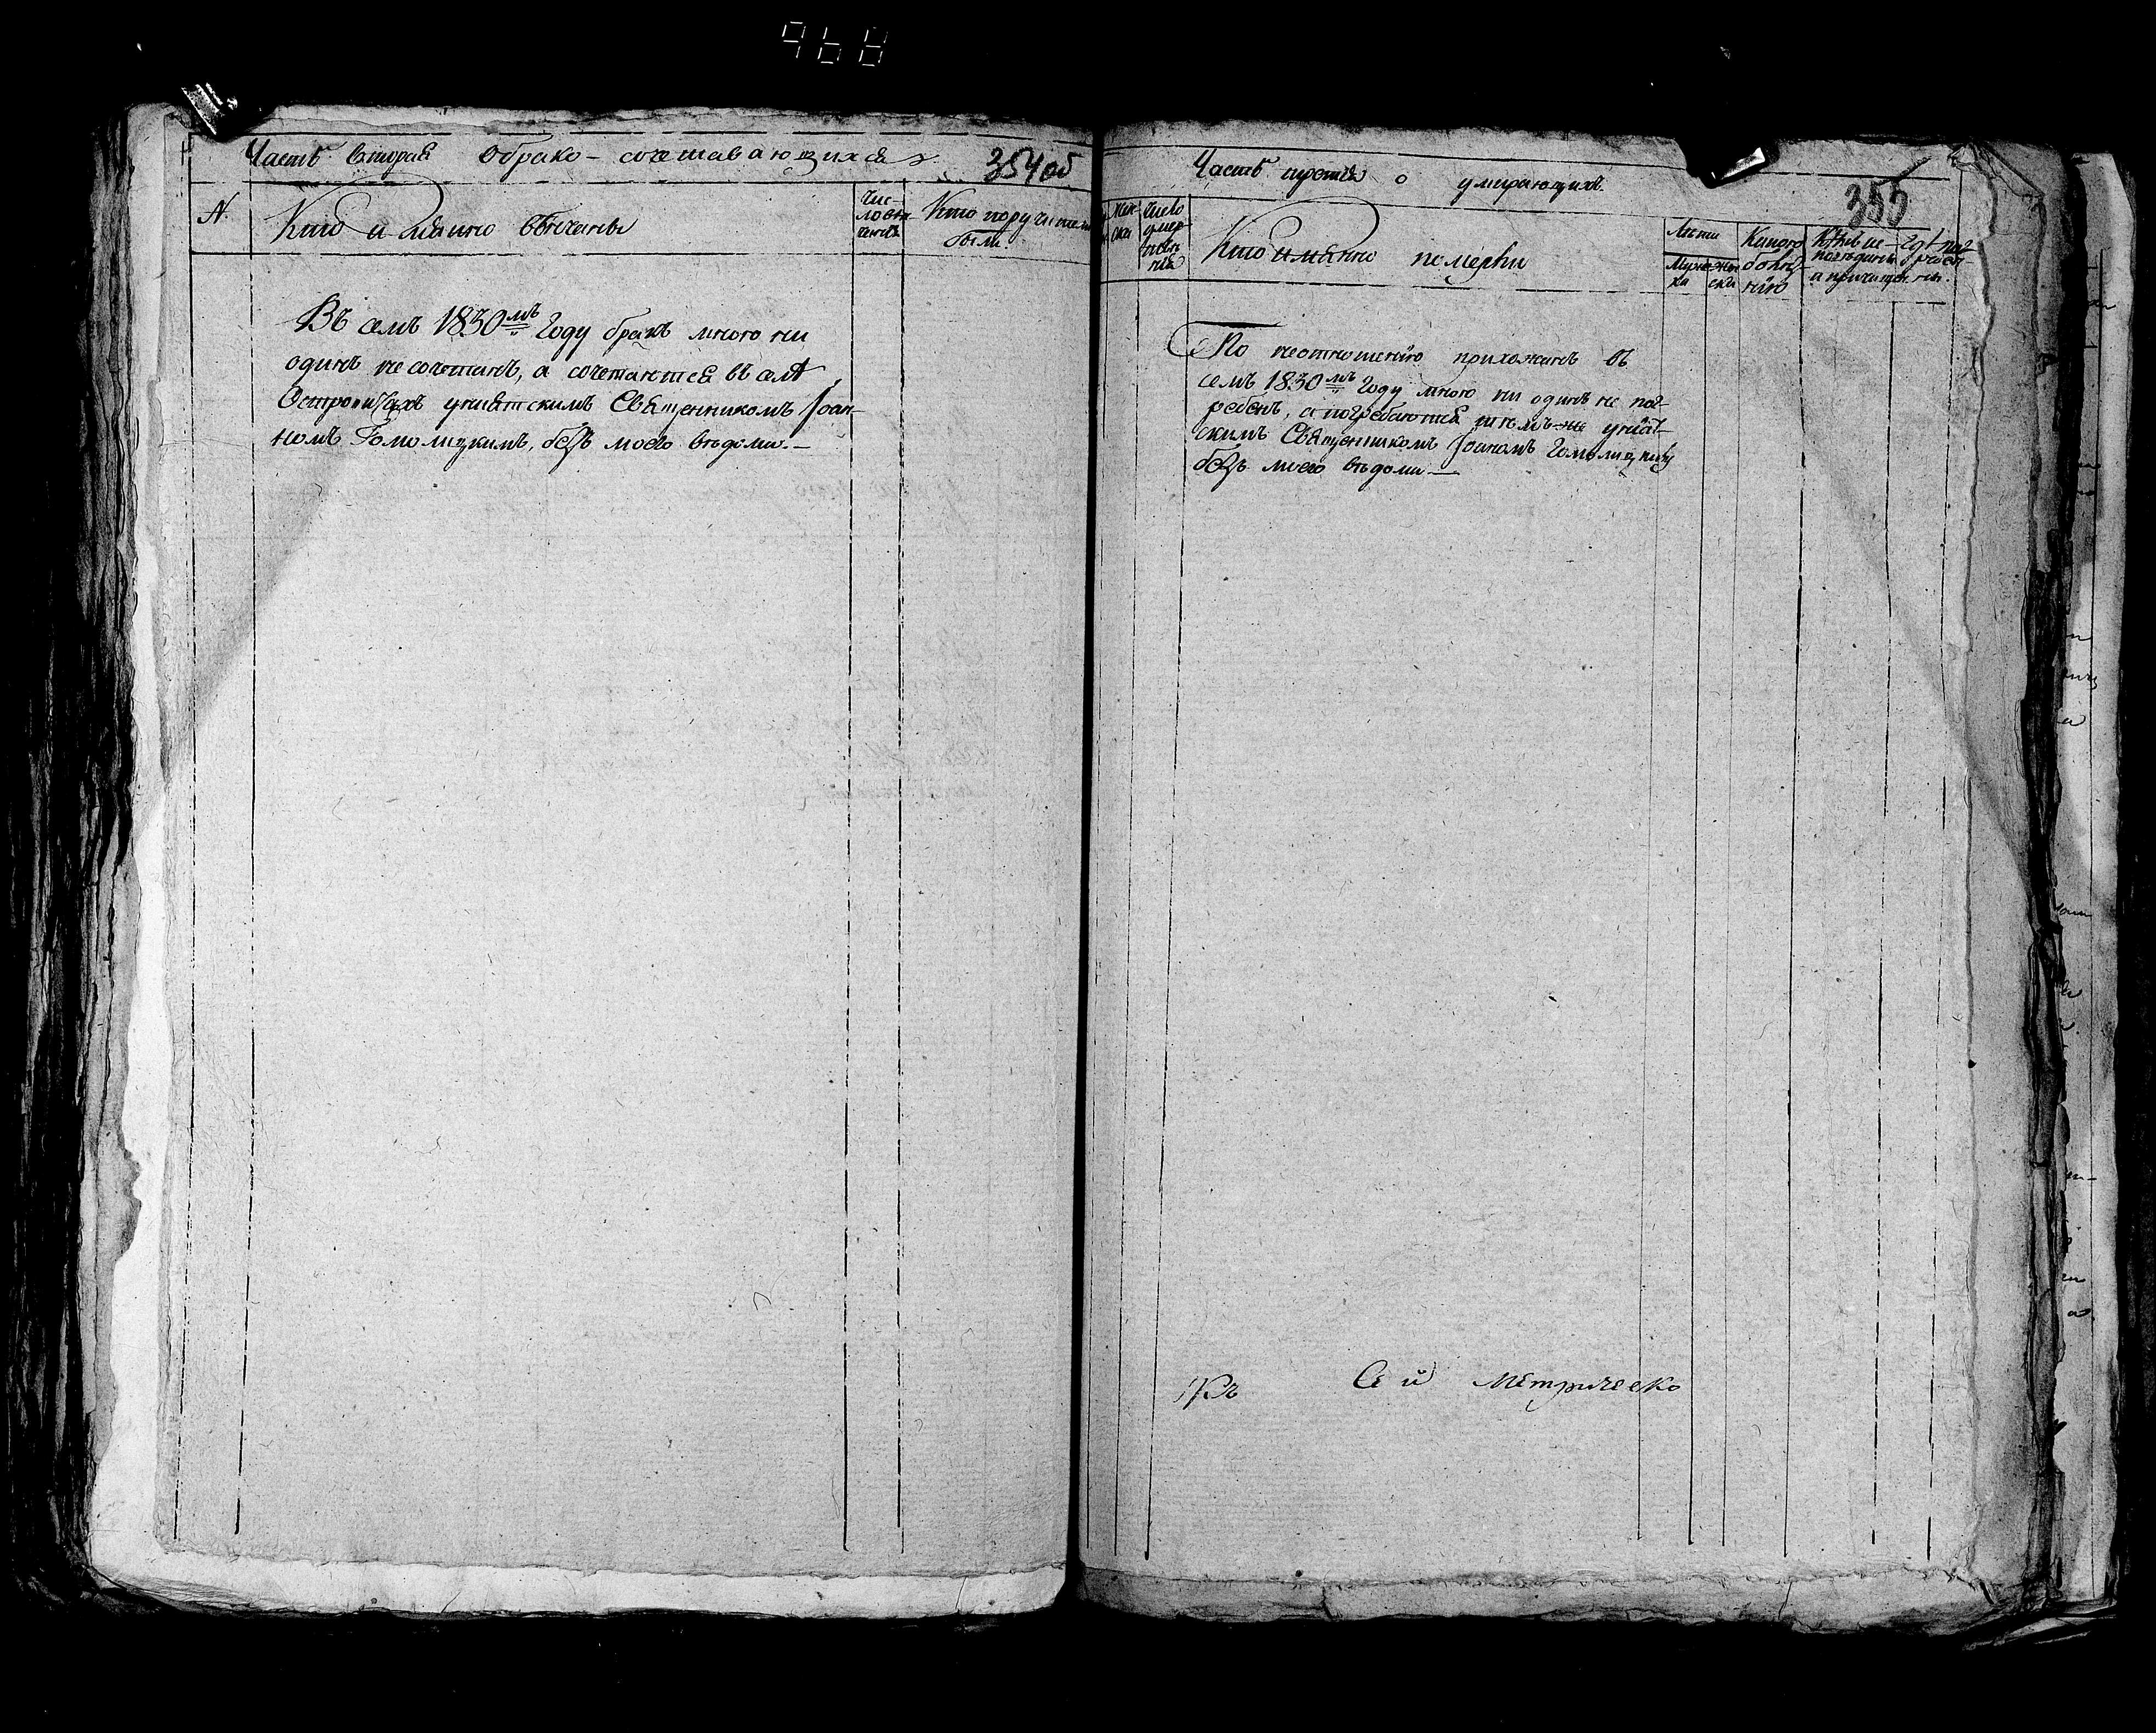 968
Часть вторая о брако-сочетающихся
354 об
№
Кто имянно венчаны
Чис-
ло вен
чанiя
Кто поручители
были.
Въ семъ 1830мъ Году бракъ мною ни
одинъ не сочетанъ, а сочетаются въ селѣ
Унiятскимъ Священникомъ Iоан-
номъ Гомолицкимъ, безъ моего вѣдома. —
Часть третiя о умирающихъ
355
Жен-
ска
Число
умер-
Кто имянно померли
Лѣта
Муже-
ска
Жен
ска
Какою
болѣз-
нiю
Кѣмъ испо-
вѣдываны
и причащены.
Гдѣ пог-
ребе-
ны.
По неотношенiю прихожанъ въ
семъ 1830мъ Году мною ни одинъ не пог-
ребенъ, а погребаются тѣмъ-же унiат-
скимъ Священникомъ Iоаномъ Гомолицкимъ
безъ моего вѣдома —
Къ Сей Метрическо